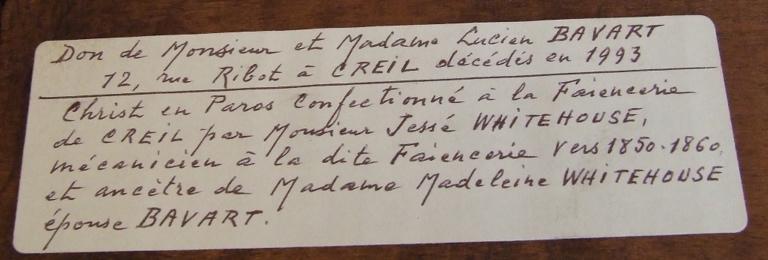 Don de Monsieur et Madame Lucien BAVART
12, rue Ribot à CREIL décédés en 1993
Christ en Paros Confectionné à la Faïencerie
de CREIL par Monsieur Jessé WHITEHOUSE,
mécanicien à la dite Faïencerie vers 1850-1860,
et ancètre de Madame Madeleine WHITEHOUSE
épouse BAVART.